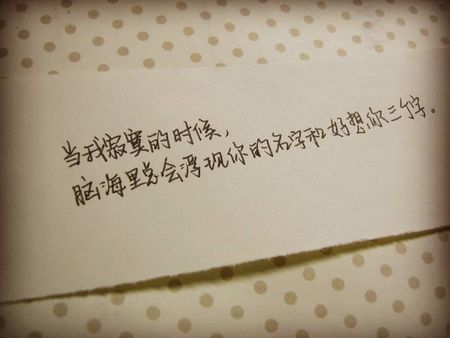 当我寂寞的时候，
脑海里总会浮现你的名字和好想你三个字。